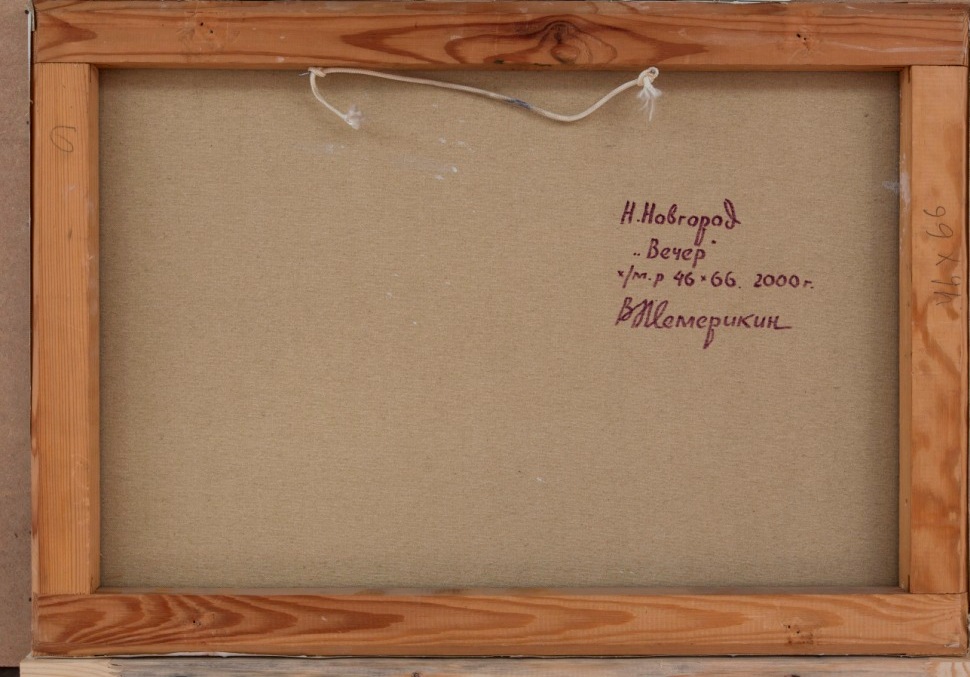 Н.Новгород
„Вечер"
х/м. р 46×66. 2000г.
В Шемерикин
46 x 66